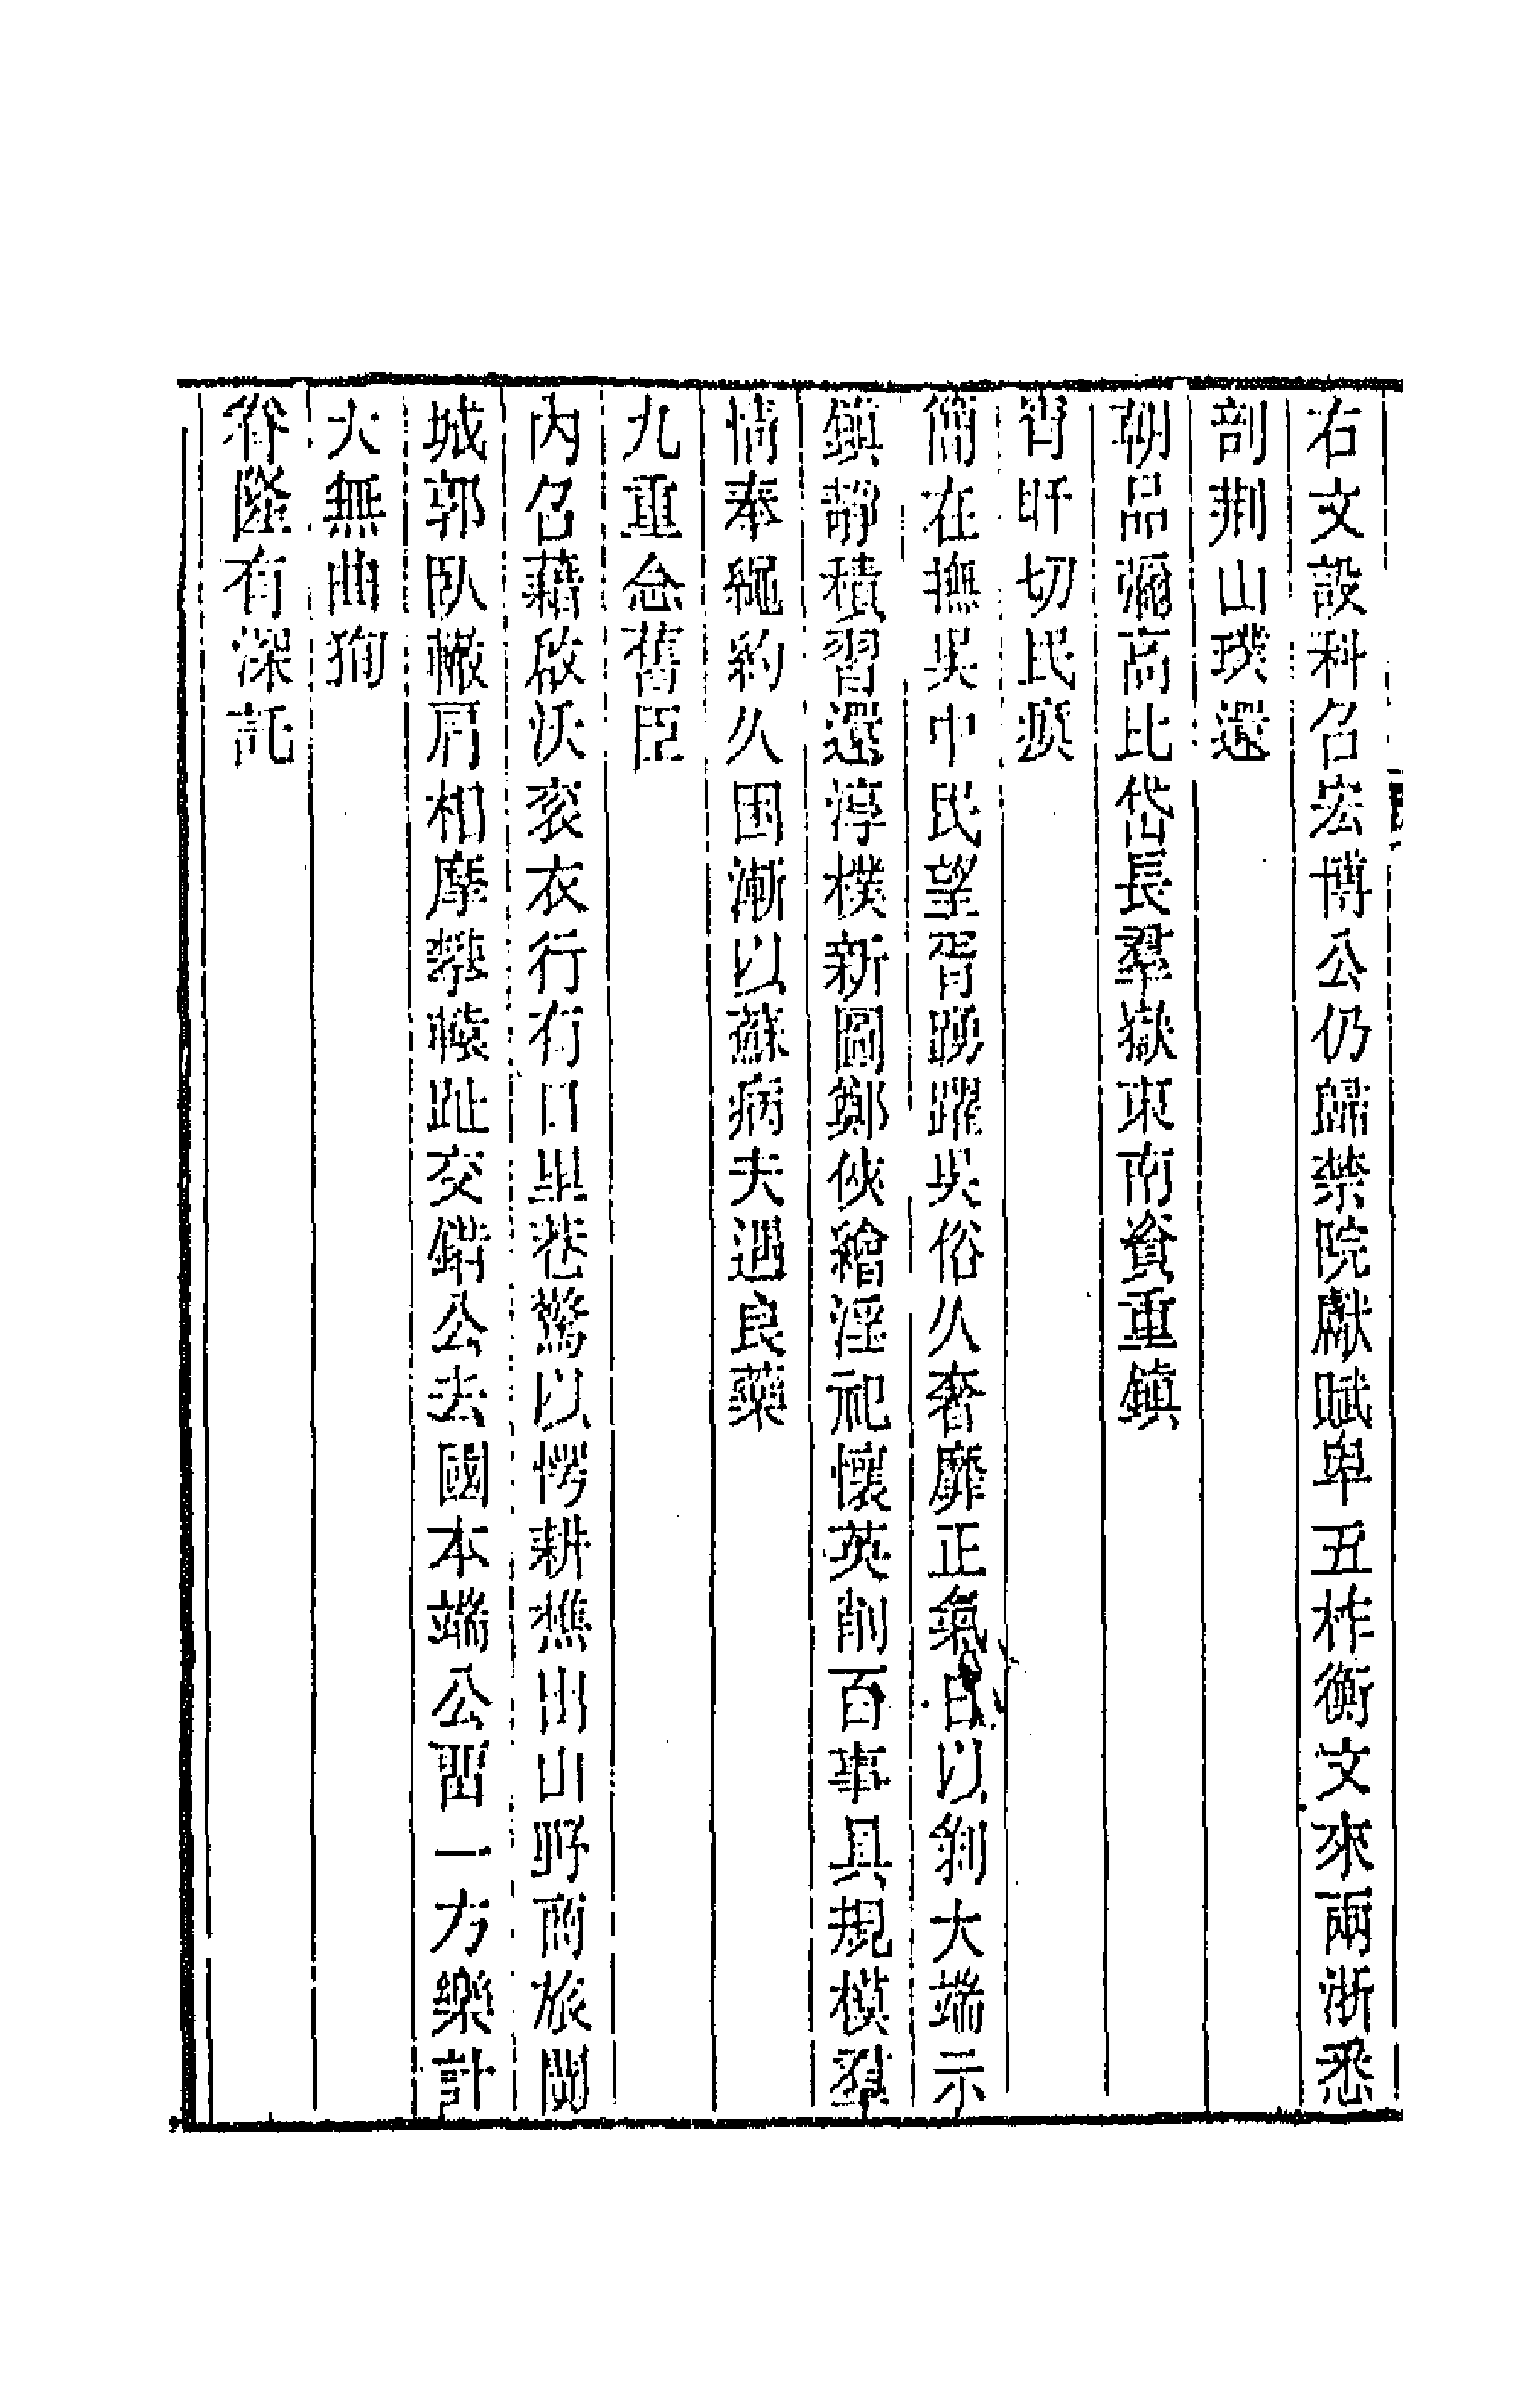 右文設科名宏博公仍歸禁院獻賦卑五柞衡文來兩浙悉
剖荆山璞還
朝品彌高比岱長羣嶽東南資重鎮
宵旰切民瘼
簡在撫吳中民望胥踴躍吳俗久奢靡正氣自以剝大端示
鎮靜積習還淳樸新圖鄭俠繪淫祀懷英削百事具規模羣
情奉繩約久困漸以蘇病夫遇良藥
九重念舊臣
內召藉啟沃衮衣行有日里巷驚以愕耕樵出山野商旅闐
城郭臥轍肩相摩攀轅趾交錯公去國本端公留一方樂計
大無曲狥
眷隆有深託